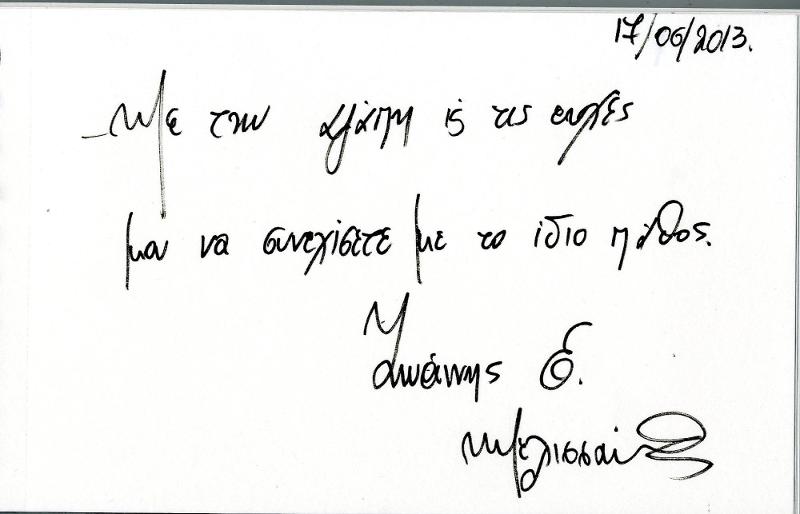 17/06/2013.
Με την αγάπη & τις ευχές
μου να συνεχίσετε με το ίδιο πάθος.
Ιωάννης Θ.